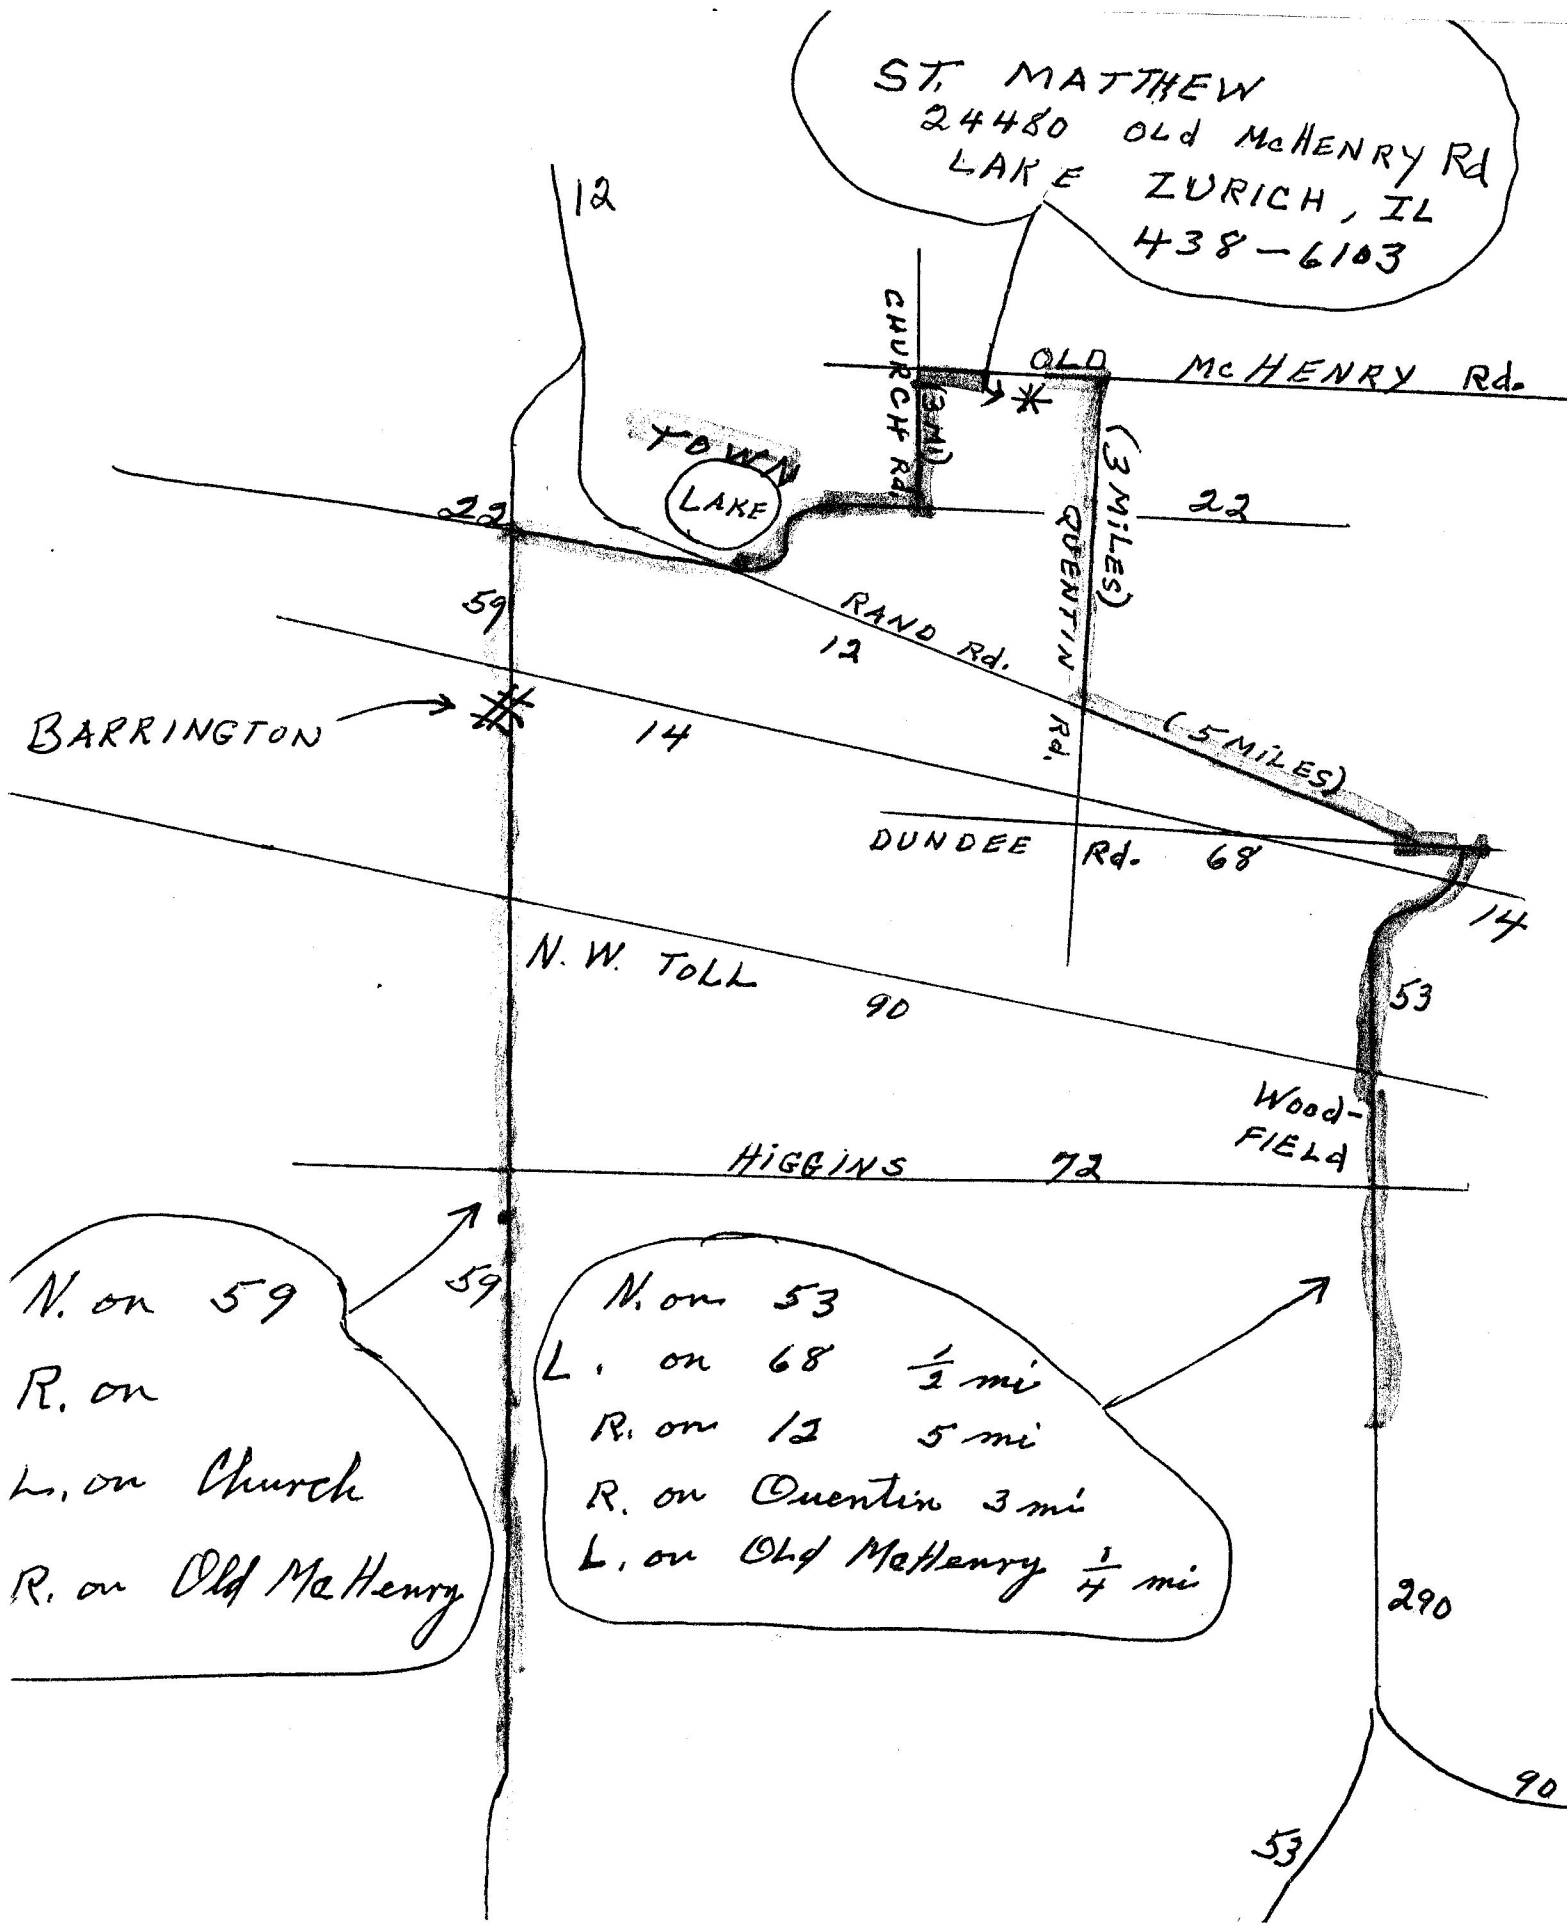 ST. MATTHEW
24480 OLd McHENRY Rd
LAKE ZURICH, IL
438-6103
12
CHURCH Rd.
(3 Mi)
OLD McHENRY Rd.
TOWN
LAKE
22
22
(3 MiLES)
QUENTIN Rd.
59
RAND Rd.
12
BARRINGTON
14
(5 MiLES)
DUNDEE Rd. 68
14
N.W. TOLL
90
53
Wood-
FIELd
HiGGiNS 72
59
N. on 59
R. on
L. on Church
R. on Old McHenry
N. on 53
L. on 68 1/2 mi
R. on 12 5 mi
R. on Quentin 3 mi
L. on OLd McHenry 1/4 mi
290
90
53